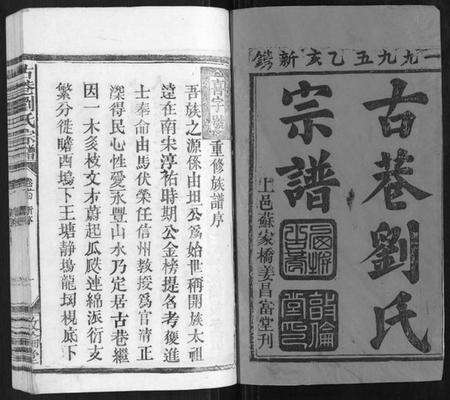 一九九五乙亥新鐫
古巷劉氏
宗譜
上邑蘇家橋姜昌富堂刊
敦倫堂印
重修族譜序
吾族之源係由坦公爲始世稱開族太祖
遠在南宋淳祐時期公金榜提名考獲進
士奉命由馬伏榮任信州教授爲官清正
深得民心性愛永豐山水乃定居古巷繼
因一木多枝文才蔚起瓜瓞連綿派衍支
繁分徙瞻酉塢下王塘静塢龍坂梘底下
古巷劉氏宗譜